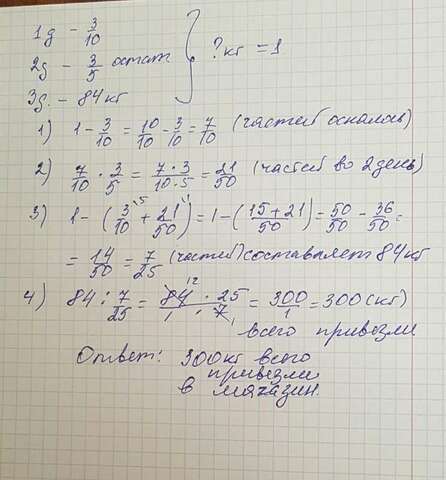 1д - 3/10
2д - 3/5 остат } ? кг = 1
3д. - 84 кг
1) 1 - 3/10 = 10/10 - 3/10 = 7/10 (частей осталось)
2) 7/10 · 3/5 = 7·3/10·5 = 21/50 (частей во 2 день)
3) 1 - (3/10 + 21/50) = 1 - (15+21/50) = 50/50 - 36/50 =
= 14/50 = 7/25 (частей) составляет 84 кг
4) 84 : 7/25 = 84 · 25/1 · 7 = 300/1 = 300 (кг)
всего привезли
Ответ: 300 кг всего
привезли
в магазин.